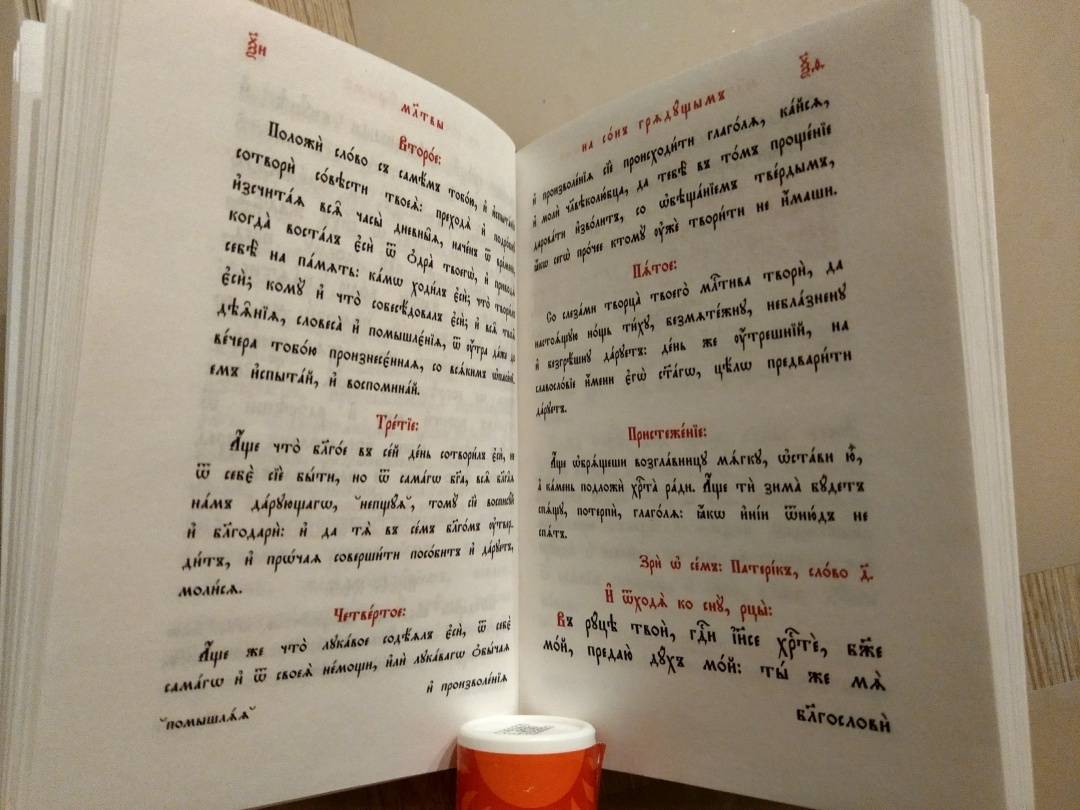 ѯ҃и
мл҃твы
Второ́е:
Положѝ сло́во съ самѣ́мъ тобо́ю, и҆ и҆спыта́нїе
сотворѝ со́вѣсти твоеѧ̀: преходѧ̀ и҆ подро́бнꙋ
и҆зсчита́ѧ всѧ̑ часы̀ дневны̑ѧ, наче́нъ ѿ вре́мене,
когда̀ воста́лъ є҆сѝ ѿ ѻ҆дра̀ твоегѡ̀, и҆ приводѧ̀
себѣ̀ на па́мѧть: ка́мѡ ходи́лъ є҆сѝ; что̀ твори́лъ
є҆сѝ; комꙋ̀ и҆ что̀ собесѣ́довалъ є҆сѝ; и҆ всѧ̑ твоѧ̑
дѣѧ̑нїѧ, словеса̀ и҆ помышлє́нїѧ, ѿ ᲂу҆́тра да́же до
ве́чера тобо́ю произнесє́ннаѧ, со всѧ́кимъ ѡ҆па́сенїемъ
и҆спыта́й, и҆ воспомина́й.
Тре́тїе:
А҆́ще что̀ бл҃го́е въ се́й де́нь сотвори́лъ є҆сѝ, не
ѿ себє̀ сїѐ бы́ти, но ѿ самагѡ̀ бг҃а, всѧ̑ бл҃га̑ѧ
на́мъ да́рꙋющагѡ, "непщꙋ́ѧ", томꙋ̀ сїѐ восписꙋ́й
и҆ бл҃годарѝ: и҆ да тѧ̀ въ се́мъ бл҃го́мъ ᲂу҆твер-
ди́тъ, и҆ прѡ́чаѧ соверши́ти посо́битъ и҆ да́рꙋетъ,
моли́сѧ.
Четве́ртое:
А҆́ще же что̀ лꙋка́вое содѣ́ѧлъ є҆сѝ, ѿ себє̀
самагѡ̀ и҆ ѿ своеѧ̀ не́мощи, и҆лѝ лꙋка́вагѡ ѻ҆бы́чаѧ
и҆ произволе́нїѧ
"помышлѧ́ѧ"
ѯ҃ѳ.
на со́нъ грѧдꙋ́щымъ
и҆ произволе́нїѧ сїѐ происходи́ти глаго́лѧ, ка́йсѧ,
и҆ молѝ чл҃вѣколю́бца, да тебѣ̀ въ то́мъ проще́нїе
дарова́ти и҆зво́литъ, со ѡ҆бѣща́нїемъ тве́рдымъ,
ꙗ҆́кѡ сегѡ̀ про́чее ктомꙋ̀ ᲂу҆жѐ твори́ти не и҆́маши.
Пѧ́тое:
Со слеза́ми творца̀ твоего̀ мл҇тива творѝ, да
настоѧ́щꙋю но́щь ти́хꙋ, безмѧте́жнꙋ, небла́зненꙋ
и҆ безгрѣ́шнꙋ да́рꙋетъ: де́нь же ᲂу҆́трешнїй, на
славосло́вїе и҆́мени є҆гѡ̀ ст҃а́гѡ, цѣ́лѡ предвари́ти
да́рꙋетъ.
Пристеже́нїе:
А҆́ще ѡ҆брѧ́щеши возгла́вницꙋ мѧ́гкꙋ, ѡ҆ста́ви ю҆̀,
а҆ ка́мень подложѝ хрⷭ҇та̀ ра́ди. А҆́ще тѝ зима̀ бꙋ́детъ
спѧ́щꙋ, потерпѝ, глаго́лѧ: ꙗ҆́кѡ и҆ні́и ѿню́дъ не
спѧ́тъ.
Зрѝ ѡ҆ се́мъ: Патері́къ, сло́во д҃.
И҆ ѿходѧ̀ ко снꙋ̀, рцы̀:
Въ рꙋ́цѣ твоѝ, гдⷭ҇и і҆и҃се хрⷭ҇тѐ, бж҃е
мо́й, предаю̀ дꙋ́хъ мо́й: ты́ же мѧ̀
бл҃гословѝ